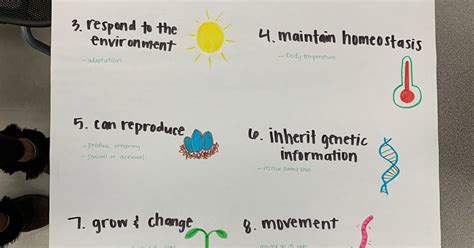 3. respond to the
environment
- adaptation
4. maintain homeostasis
- body temperature
5. can reproduce
- produce offspring
- (sexual or asexual)
6. inherit genetic
information
7. grow & change
8. movement